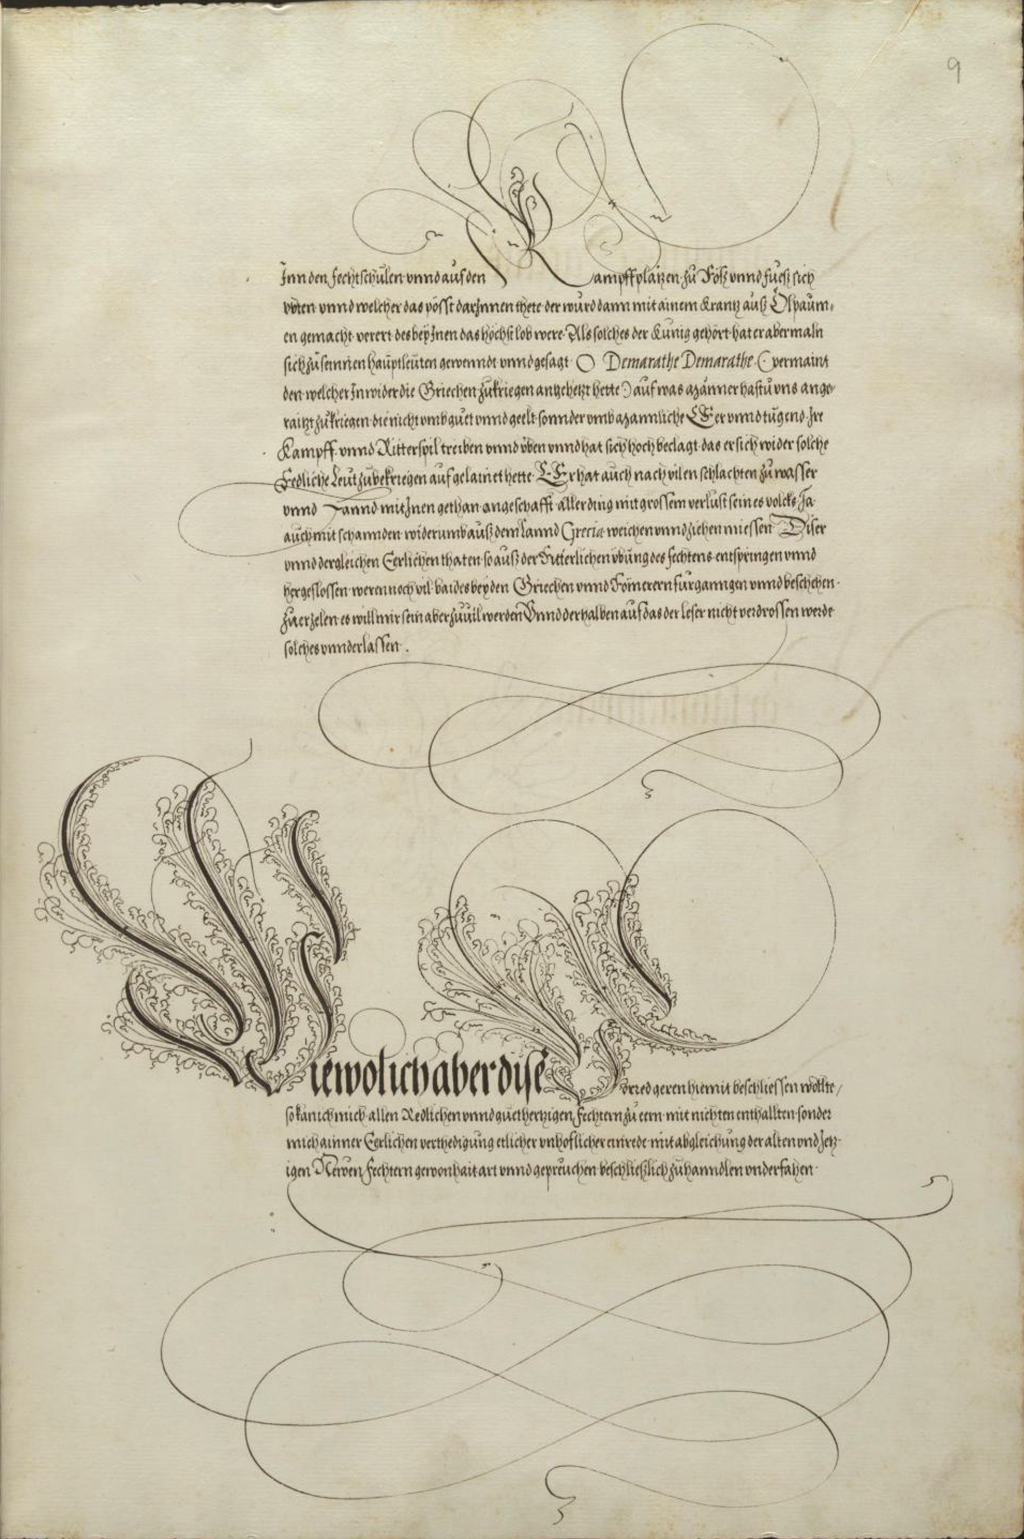 9
Inn den Fechtschůlen vnnd auf den Kampffplätzen zů Roß vnnd fůeß sich
vbten vnnd welcher das pösst darInnen thete der wurd dann mit ainem Krantz auß Ölpaüm,
en gemacht verert des bey Inen das höchst lob were. Als solches der Künig gehört hat er abermaln
sich zů seinnen haüptleüten gewenndt vnnd gesagt O Demarathe Demarathe (: vermaint
den welcher In wider die Griechen zükriegen angehetzt hette :) auf was Männer hastu vns ange,
raitzt zůkriegen die nicht vmb gůet vnnd geelt sonnder vmb Mannliche Eer vnnd tügend Ire
Kampff vnnd Ritterspil treiben vnnd vben vnnd hat sich hoch beclagt das er sich wider solche
Redliche Leut zübekriegen aufgelainet hette. Er hat auch nach vilen schlachten zů wasser
vnnd Lannd mit Inen gethan angeschafft allerding mit grossem verlust seines volcks Ja
auch mit schannden widerumb auß dem Lannd Grecia weichen vnnd ziehen miessen Diser
vnnd dergleichen Eerlichen thaten so auß der Ritterlichen vbüng des fechtens entspringen vnnd
hergeflossen weren noch vil baides bey den Griechen vnnd Römerern fürganngen vnnd beschehen
zůerzelen es will mir sein aber zůuil werden Vnnd derhalben auf das der leser nicht verdrossen werde
solches vnnderlassen.
Wiewol ich aber dise Vorred geren hiemit beschliessen wollte,
so kan ich mich allen Redlichen vnnd gůethertzigen Fechtern zů eern mit nichten enthallten sonder
mich ainner Eerlichen verthedigüng etlicher vnhoflicher einrede mit abgleichung der alten vnd Jetz-
igen Newen Fechtern gewonhait art vnnd gepreüchen beschließlich zů hanndlen vnderfahen.